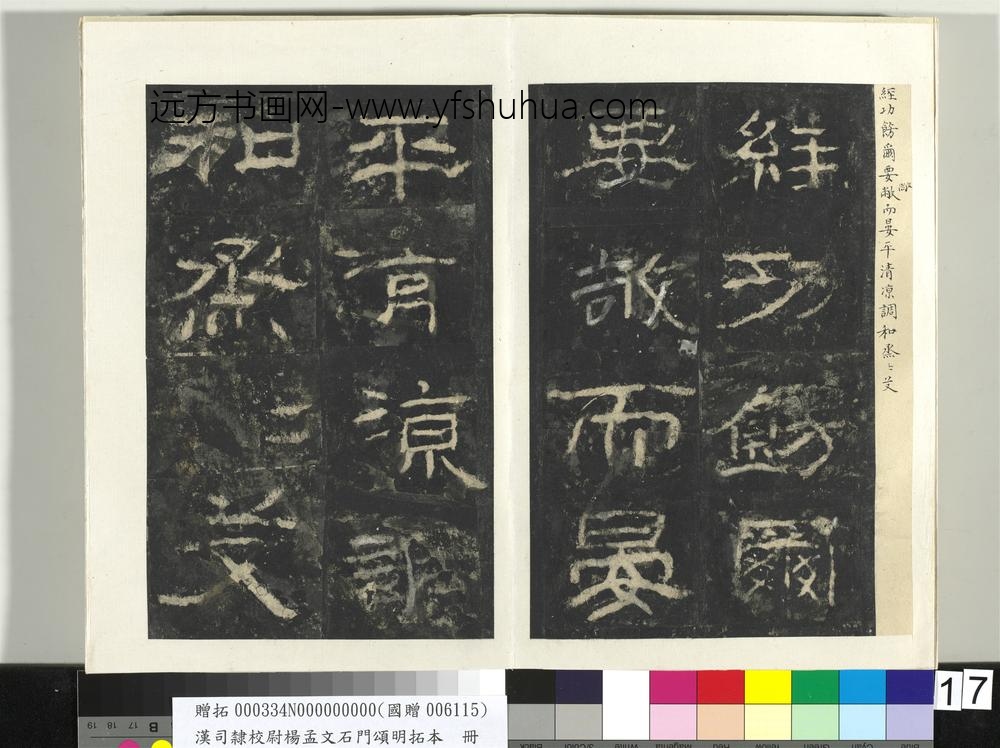 远方书画网-www.yfshuhua.com
經功飭爾要敞而晏平清涼調和烝〻艾
經功飭爾
要敞而晏
平清涼調
和烝〻艾
17
贈拓 000334N000000000(國贈 006115)
漢司隸校尉楊孟文石門頌明拓本 冊
19 18 17 16 B
Black 3/Color White Magenta Red Yellow Green Cyan Blue